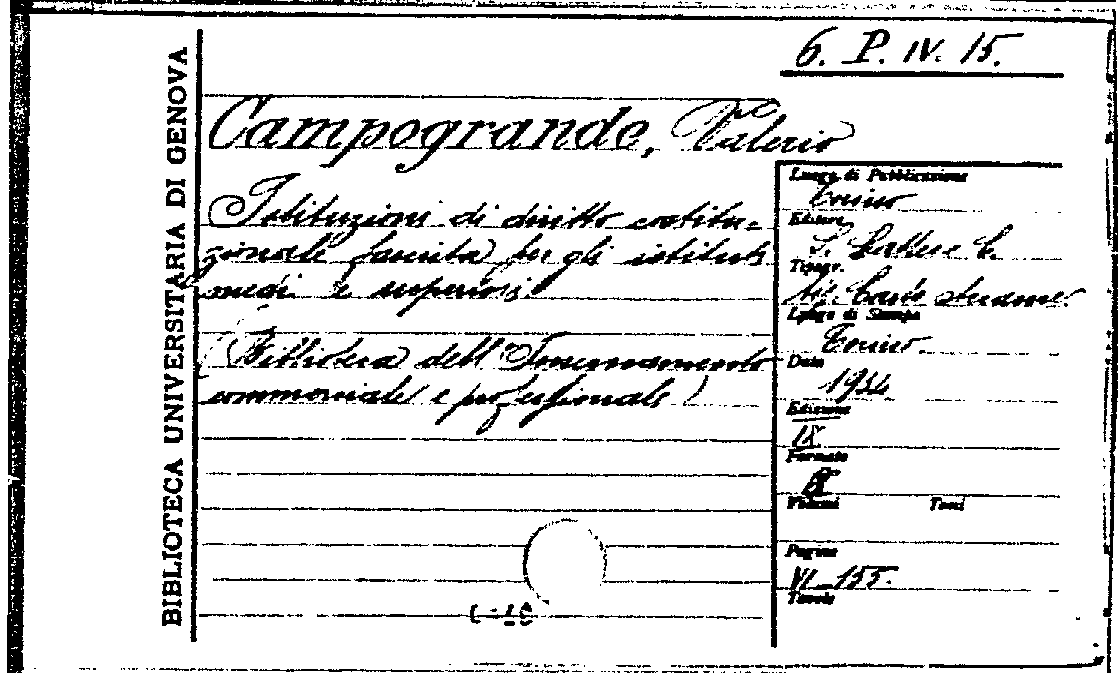 6. P. IV. 15.
BIBLIOTECA UNIVERSITARIA DI GENOVA
Campogrande, Valerio
Istituzioni di diritto costitu-
zionale per gli istituti
medi e superiori
(Biblioteca dell'Insegnamento
commerciale e professionale)
Luogo di Pubblicazione
Torino
Editore
S. Lattes e C.
Tipogr.
Carlo
Luogo di Stampa
Torino.
Data
Edizione
IX
Formato
8°
Volumi Tomi
Pagine
VI-155.
Tavole